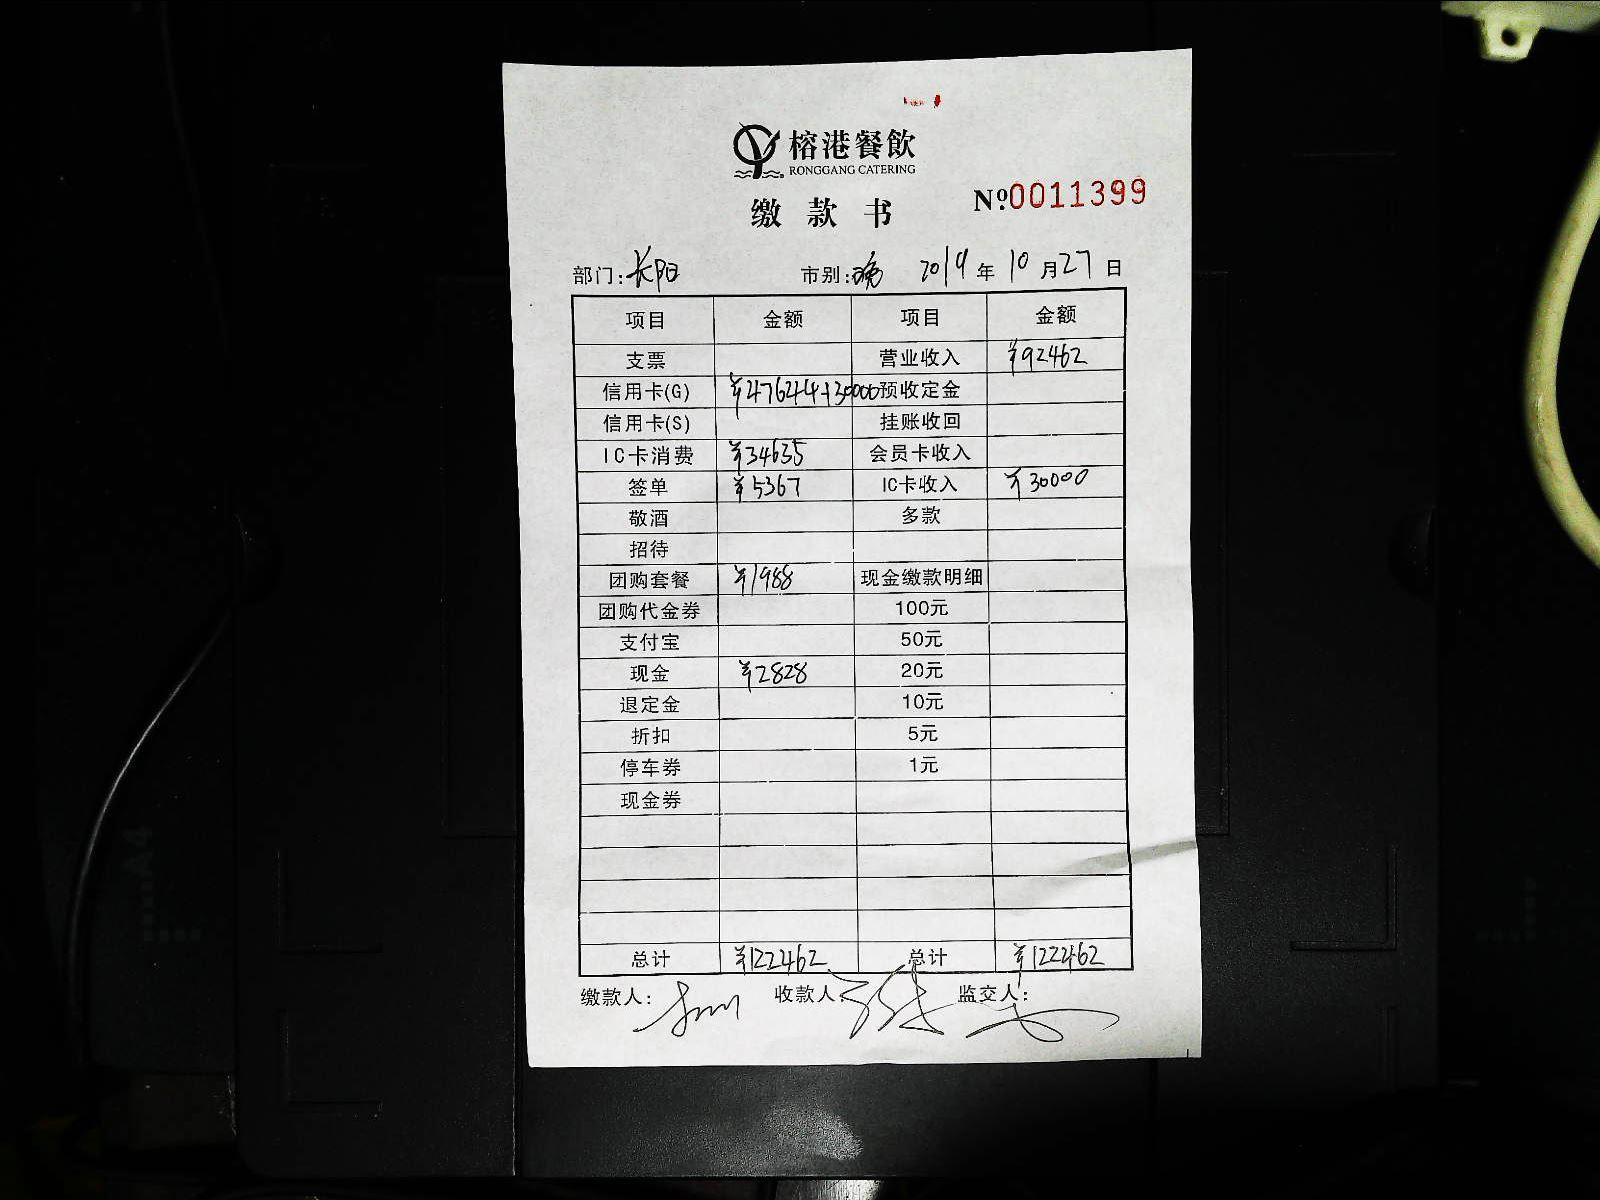 榕港餐飲
RONGGANG CATERING
缴款书 №0011399
部门:长阳 市别:晚 2019年10月27日
项目 金额 项目 金额
支票 营业收入 ¥92462
信用卡(G) ¥47644+30000 预收定金
信用卡(S) 挂账收回
IC卡消费 ¥34635 会员卡收入
签单 ¥5367 IC卡收入 ¥30000
敬酒 多款
招待
团购套餐 ¥1988 现金缴款明细
团购代金券 100元
支付宝 50元
现金 ¥2828 20元
退定金 10元
折扣 5元
停车券 1元
现金券
总计 ¥122462 总计 ¥122462
缴款人: 收款人: 监交人:
A4